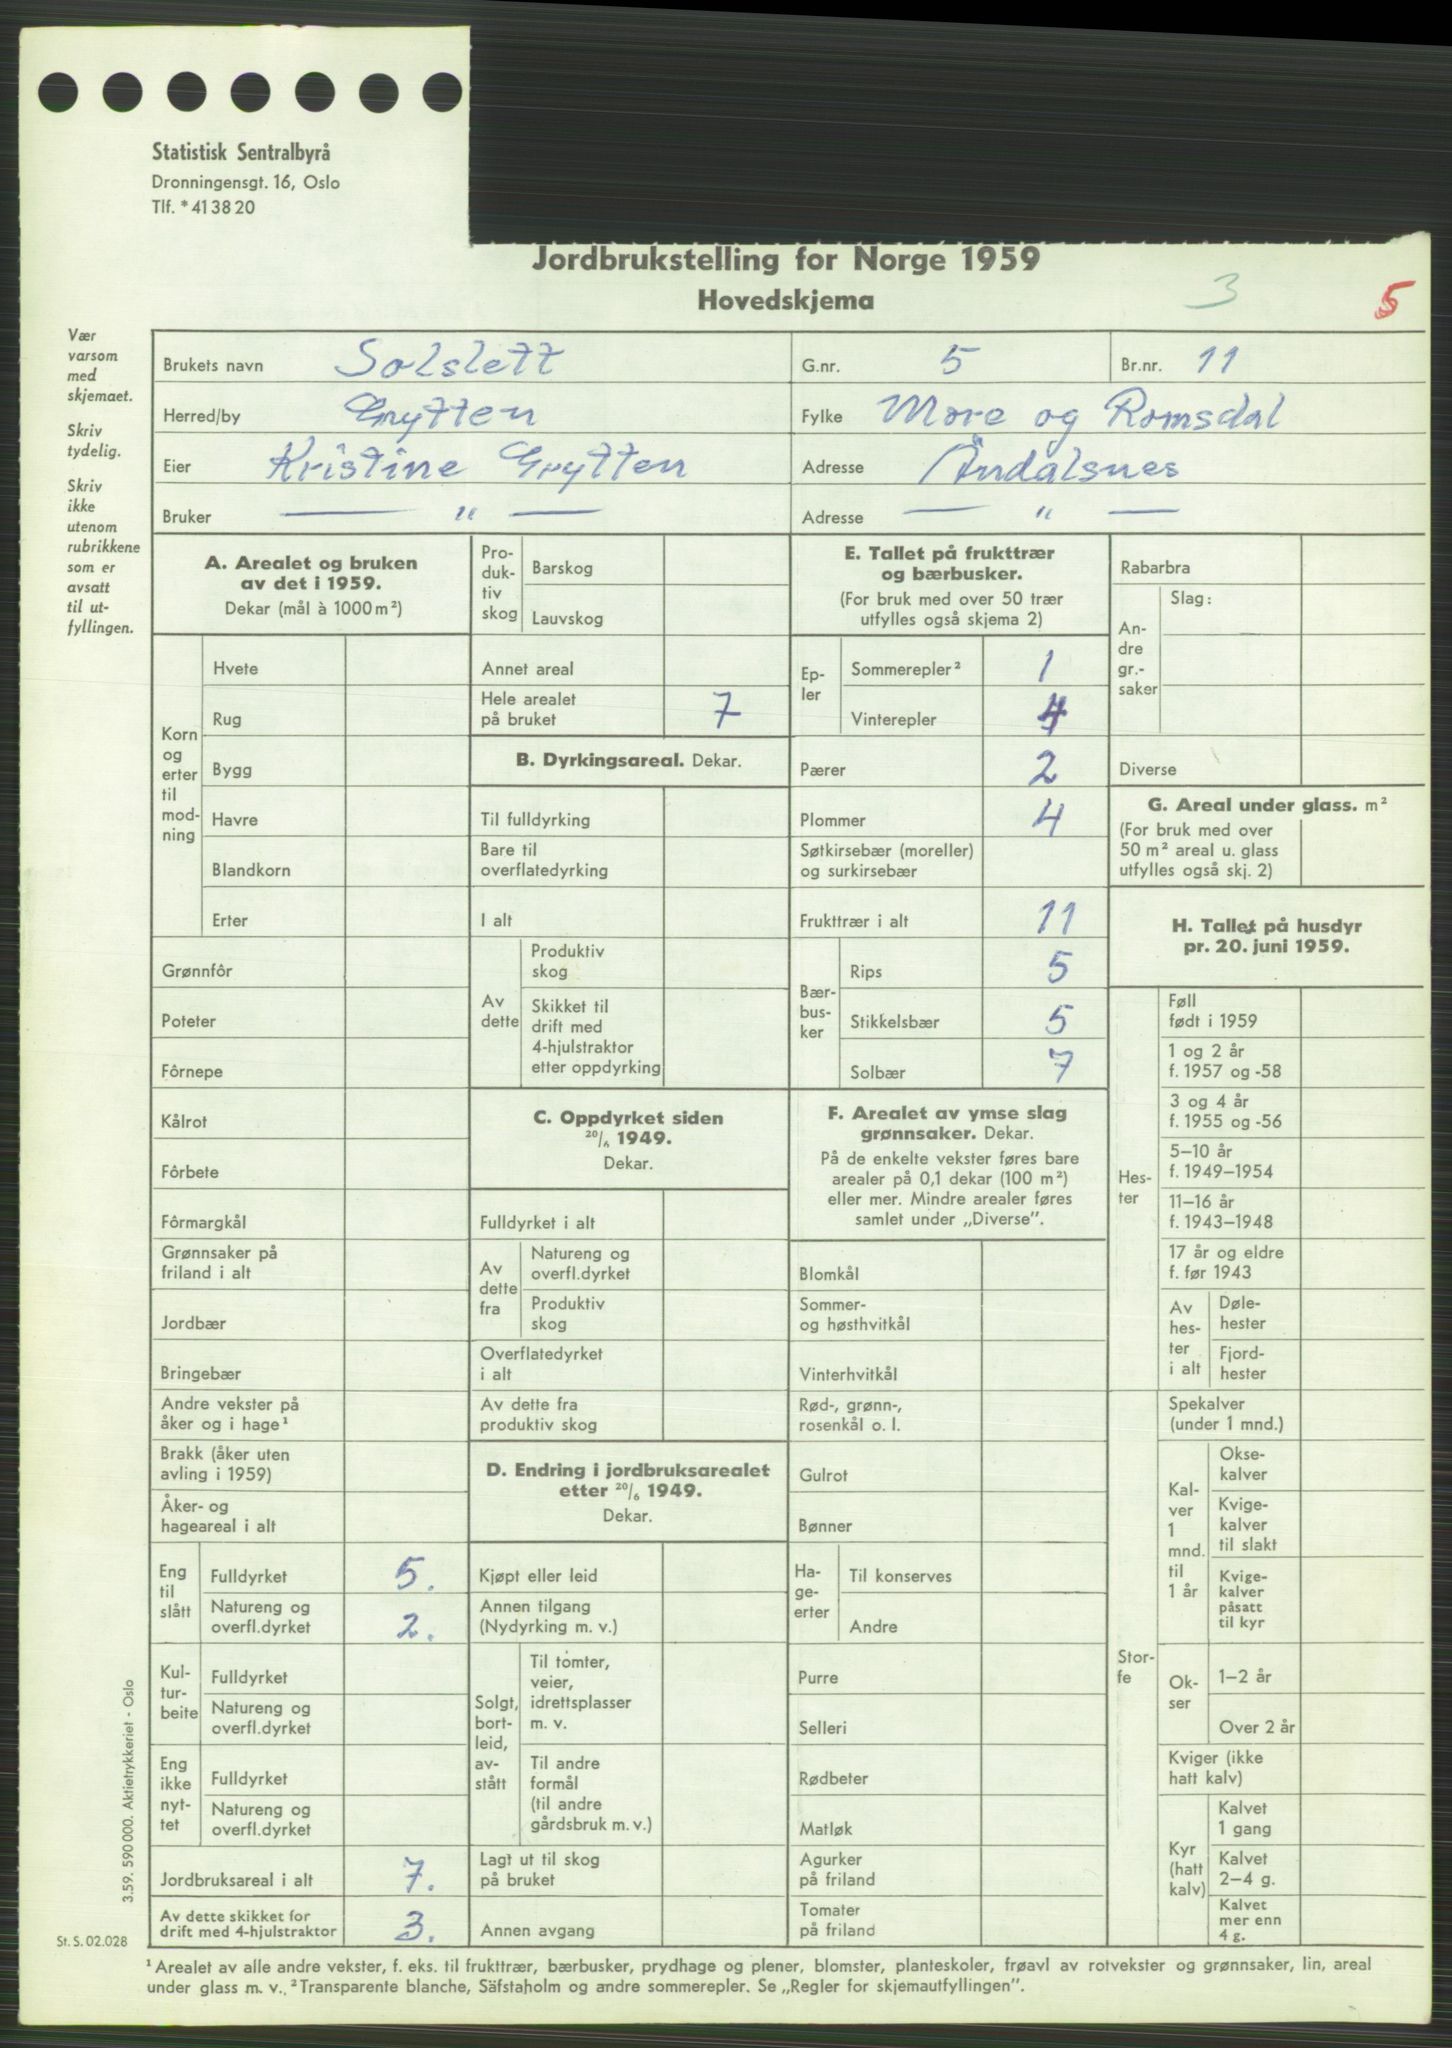 Statistisk Sentralbyrå
Dronningensgt. 16, Oslo
Tlf. * 41 38 20
Jordbrukstelling for Norge 1959
Hovedskjema
3
5
Vær
varsom
med
skjemaet.
Skriv
tydelig.
Skriv
ikke
utenom
rubrikkene
som er
avsatt
til ut-
fyllingen.
Brukets navn Solslett G.nr. 5 Br.nr. 11
Herred/by Grytten Fylke Møre og Romsdal
Eier Kristine Grytten Adresse Åndalsnes
Bruker — " — Adresse — " —
A. Arealet og bruken
av det i 1959.
Dekar (mål à 1000 m²)
Korn
og
erter
til
mod-
ning
Hvete
Rug
Bygg
Havre
Blandkorn
Erter
Grønnfôr
Poteter
Fôrnepe
Kålrot
Fôrbete
Fôrmargkål
Grønnsaker på
friland i alt
Jordbær
Bringebær
Andre vekster på
åker og i hage¹
Brakk (åker uten
avling i 1959)
Åker- og
hageareal i alt
Eng
til
slått
Fulldyrket 5.
Natureng og
overfl.dyrket 2.
Kul-
tur-
beite
Fulldyrket
Natureng og
overfl.dyrket
Eng
ikke
nyt-
tet
Fulldyrket
Natureng og
overfl.dyrket
Jordbruksareal i alt 7.
Av dette skikket for
drift med 4-hjulstraktor 3.
Pro-
duk-
tiv
skog
Barskog
Lauvskog
Annet areal
Hele arealet
på bruket 7
B. Dyrkingsareal. Dekar.
Til fulldyrking
Bare til
overflatedyrking
I alt
Av
dette
Produktiv
skog
Skikket til
drift med
4-hjulstraktor
etter oppdyrking
C. Oppdyrket siden
20/6 1949.
Dekar.
Fulldyrket i alt
Av
dette
fra
Natureng og
overfl.dyrket
Produktiv
skog
Overflatedyrket
i alt
Av dette fra
produktiv skog
D. Endring i jordbruksarealet
etter 20/6 1949.
Dekar.
Kjøpt eller leid
Annen tilgang
(Nydyrking m. v.)
Solgt,
bort-
leid,
av-
stått
Til tomter,
veier,
idrettsplasser
m. v.
Til andre
formål
(til andre
gårdsbruk m. v.)
Lagt ut til skog
på bruket
Annen avgang
E. Tallet på frukttrær
og bærbusker.
(For bruk med over 50 trær
utfylles også skjema 2)
Ep-
ler
Sommerepler² 1
Vinterepler 4
Pærer 2
Plommer 4
Søtkirsebær (moreller)
og surkirsebær
Frukttrær i alt 11
Bær-
bus-
ker
Rips 5
Stikkelsbær 5
Solbær 7
F. Arealet av ymse slag
grønnsaker. Dekar.
På de enkelte vekster føres bare
arealer på 0,1 dekar (100 m²)
eller mer. Mindre arealer føres
samlet under „Diverse".
Blomkål
Sommer-
og høsthvitkål
Vinterhvitkål
Rød-, grønn-,
rosenkål o. l.
Gulrot
Bønner
Ha-
ge-
erter
Til konserves
Andre
Purre
Selleri
Rødbeter
Matløk
Agurker
på friland
Tomater
på friland
Rabarbra
An-
dre
gr.-
saker
Slag:
Diverse
G. Areal under glass. m²
(For bruk med over
50 m² areal u. glass
utfylles også skj. 2)
H. Tallet på husdyr
pr. 20. juni 1959.
Hes-
ter
Føll
født i 1959
1 og 2 år
f. 1957 og -58
3 og 4 år
f. 1955 og -56
5–10 år
f. 1949–1954
11–16 år
f. 1943–1948
17 år og eldre
f. før 1943
Av
hes-
ter
i alt
Døle-
hester
Fjord-
hester
Stor-
fe
Spekalver
(under 1 mnd.)
Kal-
ver
1
mnd.
til
1 år
Okse-
kalver
Kvige-
kalver
til slakt
Kvige-
kalver
påsatt
til kyr
Ok-
ser
1–2 år
Over 2 år
Kviger (ikke
hatt kalv)
Kyr
(hatt
kalv)
Kalvet
1 gang
Kalvet
2–4 g.
Kalvet
mer enn
4 g.
3.59. 590 000. Aktietrykkeriet - Oslo
St. S. 02.028
¹ Arealet av alle andre vekster, f. eks. til frukttrær, bærbusker, prydhage og plener, blomster, planteskoler, frøavl av rotvekster og grønnsaker, lin, areal
under glass m. v. ² Transparente blanche, Säfstaholm og andre sommerepler. Se „Regler for skjemautfyllingen".